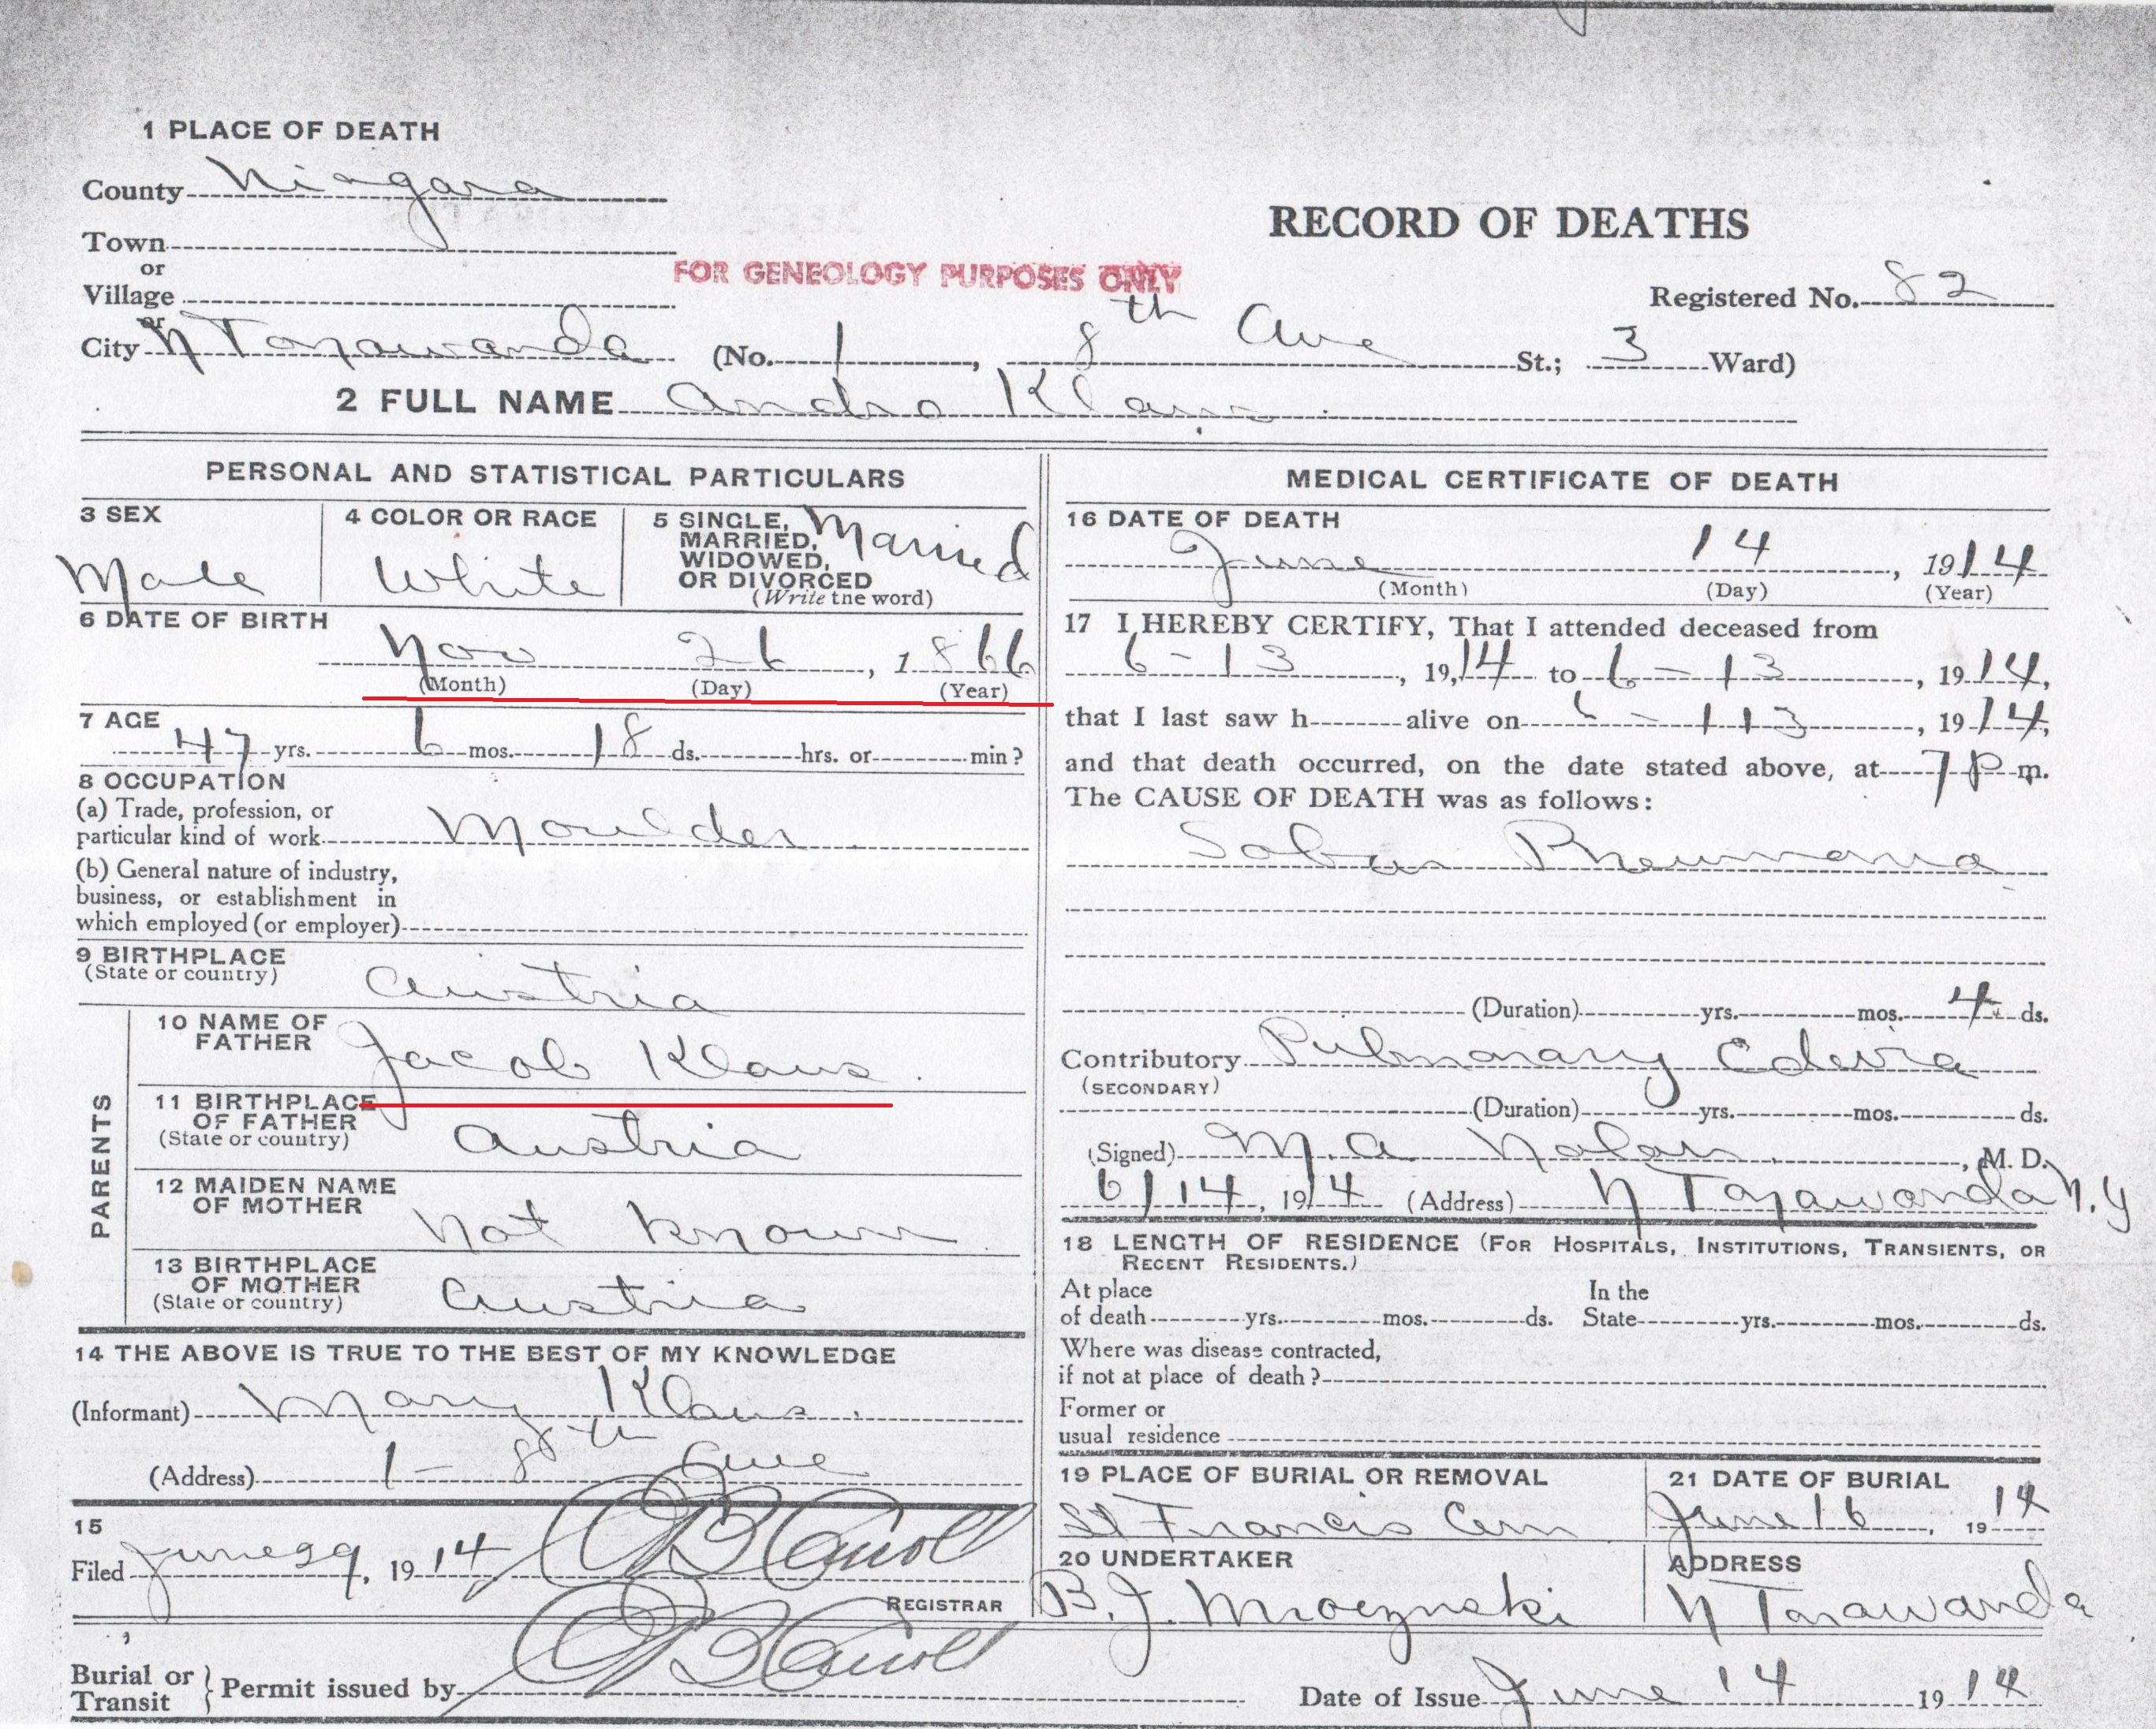 1 PLACE OF DEATH
County Niagara
RECORD OF DEATHS
Town
or
FOR GENEOLOGY PURPOSES ONLY
Village
Registered No. 82
or
City N Tonawanda (No. 1, 8th Ave St.; 3 Ward)
2 FULL NAME Andro Klaus
PERSONAL AND STATISTICAL PARTICULARS
3 SEX
Male
4 COLOR OR RACE
White
5 SINGLE,
MARRIED,
WIDOWED,
OR DIVORCED
(Write the word)
Married
6 DATE OF BIRTH
Nov 26, 1866
(Month) (Day) (Year)
7 AGE
47 yrs. 6 mos. 18 ds. hrs. or min?
8 OCCUPATION
(a) Trade, profession, or
particular kind of work Moulder
(b) General nature of industry,
business, or establishment in
which employed (or employer)
9 BIRTHPLACE
(State or country) Austria
PARENTS
10 NAME OF
FATHER Jacob Klaus
11 BIRTHPLACE
OF FATHER
(State or country) Austria
12 MAIDEN NAME
OF MOTHER Not Known
13 BIRTHPLACE
OF MOTHER
(State or country) Austria
14 THE ABOVE IS TRUE TO THE BEST OF MY KNOWLEDGE
(Informant) Mary Klaus
(Address) 1 - 8th Ave
15
Filed June 29, 1914
REGISTRAR
MEDICAL CERTIFICATE OF DEATH
16 DATE OF DEATH
June 14, 1914
(Month) (Day) (Year)
17 I HEREBY CERTIFY, That I attended deceased from
6-13, 1914 to 6-13, 1914,
that I last saw h alive on 6-13, 1914,
and that death occurred, on the date stated above, at 7 P m.
The CAUSE OF DEATH was as follows:
Lobar Pneumonia
(Duration) yrs. mos. 4 ds.
Contributory Pulmonary Edema
(SECONDARY)
(Duration) yrs. mos. ds.
(Signed) M.A. Nolan, M. D.
6/14, 1914 (Address) N Tonawanda N.Y
18 LENGTH OF RESIDENCE (FOR HOSPITALS, INSTITUTIONS, TRANSIENTS, OR
RECENT RESIDENTS.)
At place In the
of death yrs. mos. ds. State yrs. mos. ds.
Where was disease contracted,
if not at place of death?
Former or
usual residence
19 PLACE OF BURIAL OR REMOVAL
St Francis Cem
21 DATE OF BURIAL
June 16, 1914
20 UNDERTAKER
B. J. Mroczynski
ADDRESS
N Tonawanda
Burial or
Transit } Permit issued by
Date of Issue June 14 1914